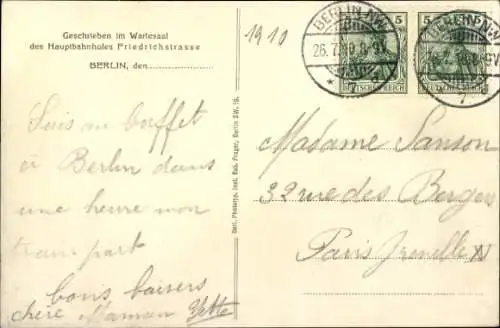 Geschrieben im Wartesaal
des Hauptbahnhofes Friedrichstrasse
BERLIN, den
1910
BERLIN N.W.
26.7.10. 8-9V.
* 7
5
5
DEUTSCHES REICH
DEUTSCHES REICH
BERLIN N.W.
Suis au buffet
à Berlin dans
une heure mon
train part
bons baisers
chère Maman Yette
Madame Sanson
32 rue des Bergers
Paris Grenelle XV